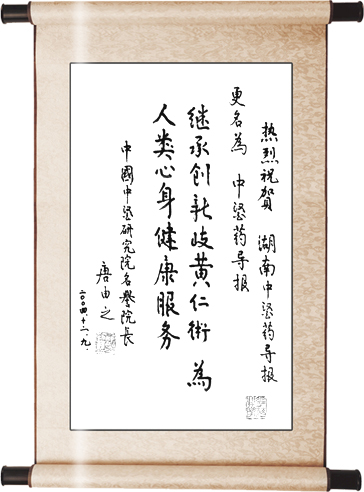 热烈祝贺 湖南中医药导报
更名为 中医药导报
继承创新岐黄仁術 为
人类心身健康服务
中國中医研究院名誉院长
唐由之
二〇〇四·十二·九·